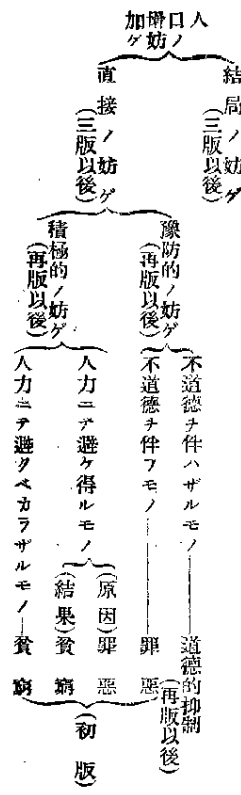 人口ノ
増加ノ妨ゲ
結局ノ妨ゲ
(三版以後)
直接ノ妨ゲ
(三版以後)
豫防的ノ妨ゲ
(再版以後)
積極的ノ妨ゲ
(再版以後)
不道德チ伴ハザルモノ――道德的抑制
(再版以後)
不道德チ伴フモノ――罪惡
人力ニテ避ケ得ルモノ
(原因)罪惡
(結果)貧窮
人力ニテ避クベカラザルモノ―貧窮
(初版)